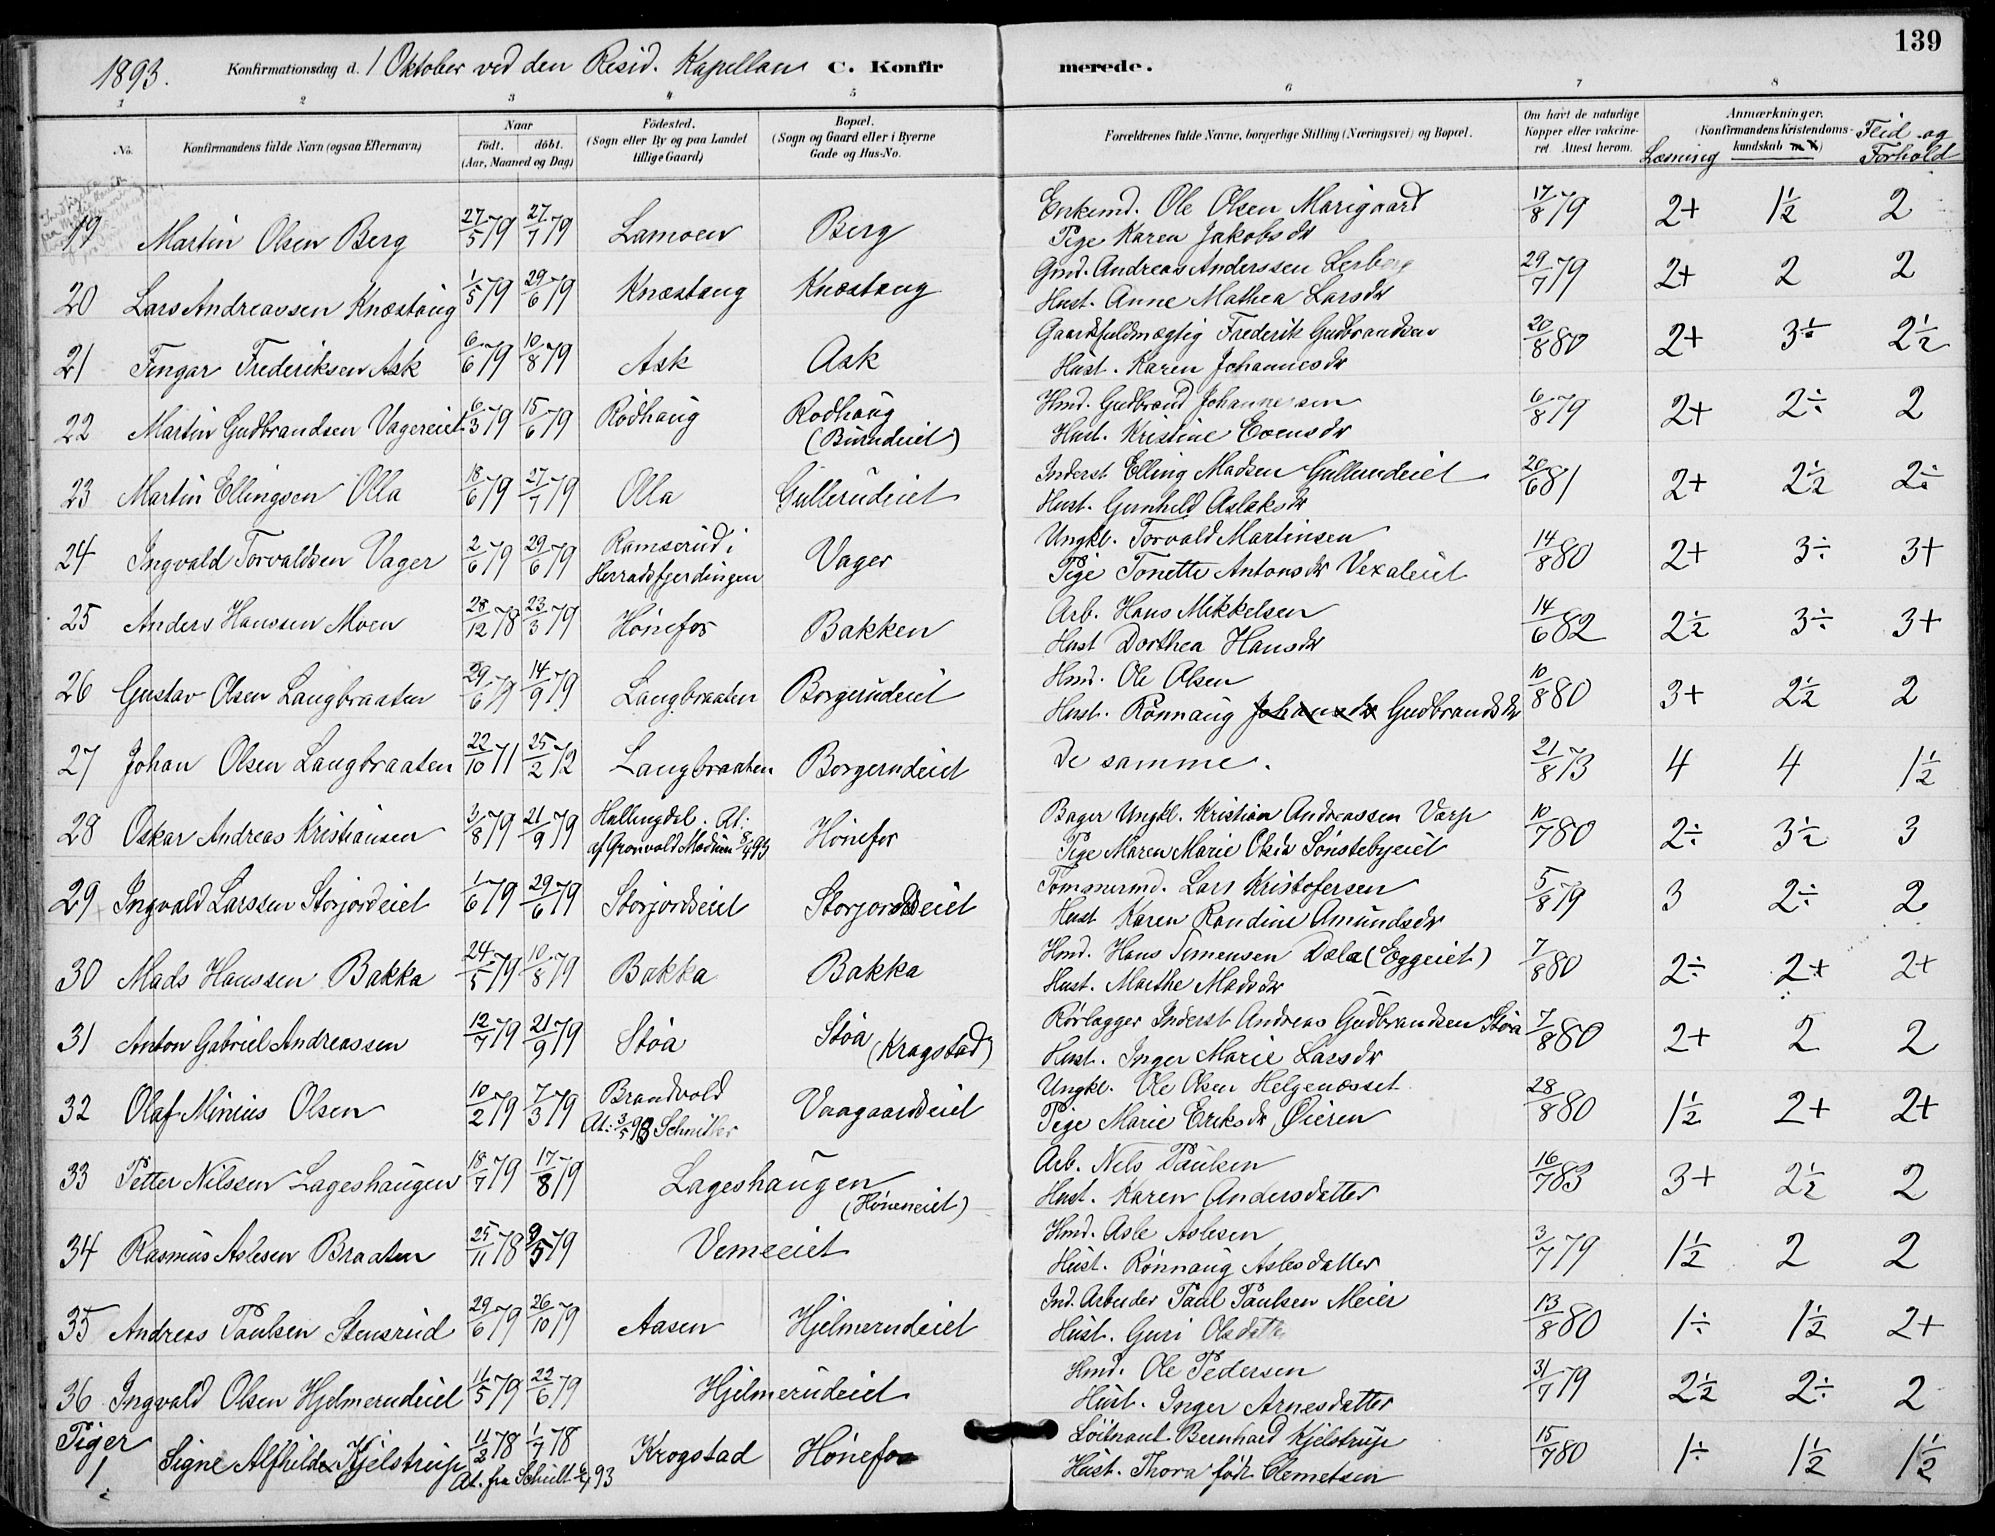 139
1893. Konfirmationsdag d. 1 Oktober ved den Resid. Kapellan C. Konfir merede.
1 2 3 4 5 6 7 8
No. Konfirmandens fulde Navn (ogsaa Efternavn) Naar født. døbt. (Aar, Maaned og Dag) Fødested. (Sogn eller By og paa Landet tillige Gaard) Bopæl. (Sogn og Gaard eller i Byerne Gade og Hus-No. Forældrenes fulde Navne, borgerlige Stilling (Næringsvei) og Bopæl. Om havt de naturlige Kopper eller vakcineret. Attest herom. Anmærkninger. (Konfirmandens Kristendomskundskab m. V.) Læsning Flid og Forhold
19 Martin Olsen Berg 27/5 79 27/7 79 Lamoen Berg Enkemd. Ole Olsen Marigaard 17/8 79 2+ 1½ 2
Pige Karen Jakobsdr
20 Lars Andreassen Knæstang 1/5 79 29/6 79 Knæstang Knæstang Gmd. Andreas Anderssen Lerberg 29/7 79 2+ 2 2
Hust. Anne Mathea Larsdr
21 Fingar Frederiksen Ask 6/6 79 10/8 79 Ask Ask Gaardsfuldmægtig Frederik Gudbrandsen 20/8 80 2+ 3½ 2½
Hust. Karen Johannesdr
22 Martin Gudbrandsen Vagereiet 6/3 79 15/6 79 Rødhaug Rødhaug Hmd. Gudbrand Johannessen 6/8 79 2+ 2÷ 2
Hust. Kristine Evensdr
23 Martin Ellingsen Olla 18/6 79 27/7 79 Olla Gullerudeiet Inderst Elling Madsen Gullerudeiet 20/6 81 2+ 2½ 2÷
Hust. Gunhild Aslaksdr
24 Ingvald Torvaldsen Vager 2/6 79 29/6 79 Ramserud i Herradsfjerdingen Vager Ungkl. Torvald Martinsen 14/8 80 2+ 3÷ 3+
Pige Tonette Antonsdr Vexaleiet
25 Anders Hanssen Moen 28/12 78 23/3 79 Hønefos Bakken Arb. Hans Mikkelsen 14/6 82 2½ 3÷ 3+
Hust Dorthea Hansdr
26 Gustav Olsen Langbraaten 29/6 79 14/9 79 Langbraaten Borgerudeiet Hmd. Ole Olsen 10/8 80 3+ 2½ 2
Hust. Rønnaug Johansdr Gudbrandsdr
27 Johan Olsen Langbraaten 22/10 71 25/2 72 Langbraaten Borgerudeiet De samme. 21/8 73 4 4 1½
28 Oskar Andreas Kristiansen 3/8 79 21/9 79 Hallingdal. At: Hønefos Bager Ungkl. Kristian Andreassen Varp 10/7 80 2÷ 3½ 3
Pige Maren Marie Olsdr Sønstebyeiet
29 Ingvald Larssen Storjordeiet 1/6 79 29/6 79 Storjordseiet Storjordseiet Tømmermd. Lars Kristofersen 5/8 79 3 2÷ 2
Hust Karen Randine Amundsdr
30 Mads Hanssen Bakka 24/5 79 10/8 79 Bakka Bakka Hmd. Hans Simensen Dæla (Eggeiet) 7/8 80 2÷ 2+ 2+
Hust. Marthe Madsdr
31 Anton Gabriel Andreassen 12/7 79 21/9 79 Støa Støa (Kragstad) Rørlægger Inderst Andreas Gudbrandsen Støa 7/8 80 2+ 2 2
Hust. Inger Marie Larsdr
32 Olaf Minius Olsen 10/2 79 7/3 79 Brandvold At: 3/5 93 Schnitler Vaagaardseiet Ungkl. Ole Olsen Helgenæsset 28/8 80 1½ 2+ 2+
Pige Marie Eriksdr Øieren
33 Petter Nilssen Lageshaugen 18/7 79 17/8 79 Lageshaugen (Høneneiet) Arb. Nels Paulsen 16/7 83 3+ 2½ 2
Hust. Karen Andersdatter
34 Rasmus Aslesen Braaten 25/11 78 9/5 79 Vemeeiet Hmd. Asle Aslesen 3/7 79 1½ 2 2
Hust. Rønnaug Aslesdatter
35 Andreas Paulsen Stensrud 29/6 79 26/10 79 Aasen Hjelmerudeiet Ind. Arbeider Paul Paulsen Meier 13/8 80 1÷ 1½ 2+
Hust. Guri Olsdatter
36 Ingvald Olsen Hjelmerudeiet 16/5 79 22/6 79 Hjelmerudeiet Hmd. Ole Pedersen 31/7 79 2½ 2÷ 2
Hust. Inger Arnesdatter
Piger
1 Signe Alfhilde Kjelstrup 11/2 78 1/7 78 Krogstad Hønefos Løitnant Bernhard Kjelstrup 15/7 80 1÷ 1½ 1½
Hust. Thora født Clemetsen